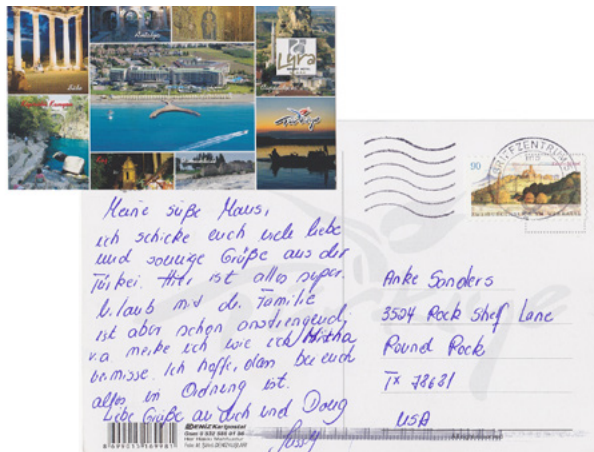 Antalya
Side
Lyra
Türkiye
Meine süße Maus,
ich schicke euch viele liebe
und sonnige Grüße aus der
Türkei. Hier ist alles super.
Urlaub mit der Familie
ist aber schon anstrengend,
v.a. merke ich wie ich
vermisse. Ich hoffe, dass bei euch
alles in Ordnung ist.
Liebe Grüße an dich und Doug
90
BRIEFZENTRUM
Anke Sanders
3524 Rock Shelf Lane
Round Rock
TX 78681
USA
Türkiye
DENİZ Kartpostal
8699011169981